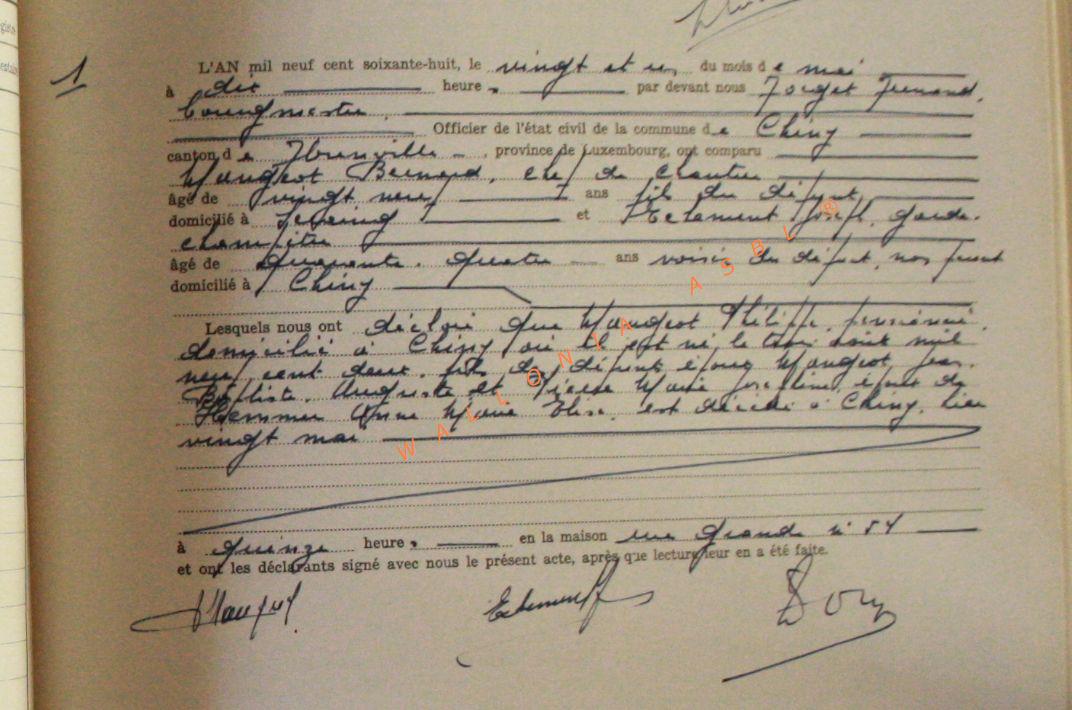 1
L'AN mil neuf cent soixante-huit, le vingt et un, du mois de mai
à dix heures par devant nous Forget Fernand,
bourgmestre
Officier de l'état civil de la commune de Chiny
canton de Florenville, province de Luxembourg, ont comparu
Maugeot Bernard, chef de chantier
âgé de vingt neuf ans fils du défunt,
domicilié à Seraing et Eclement Joseph, garde-
champêtre
âgé de quarante-quatre ans voisin du défunt, non parent
domicilié à Chiny
Lesquels nous ont déclaré que Maugeot Philippe, pensionné,
domicilié à Chiny où il est né le trois août mil
neuf cent deux, fils des défunts époux Maugeot Jean-
Baptiste, Auguste et Pierre Marie Joséphine, époux de
Hemmer Anne Marie Elise, est décédé à Chiny, hier
vingt mai
à quinze heures en la maison rue Grande n° 54
et ont les déclarants signé avec nous le présent acte, après que lecture leur en a été faite.
WALLONIA ASBL ®